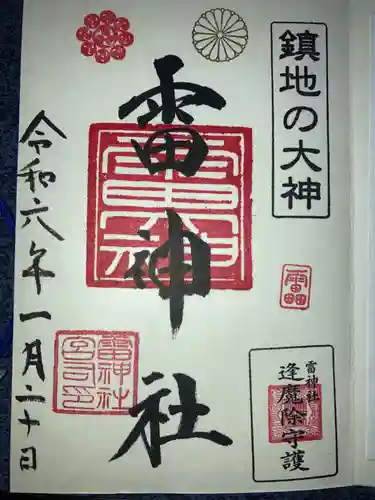 鎮地の大神
雷神社
雷神社
逢魔除守護
雷神社
宮司之印
令和六年一月二十日